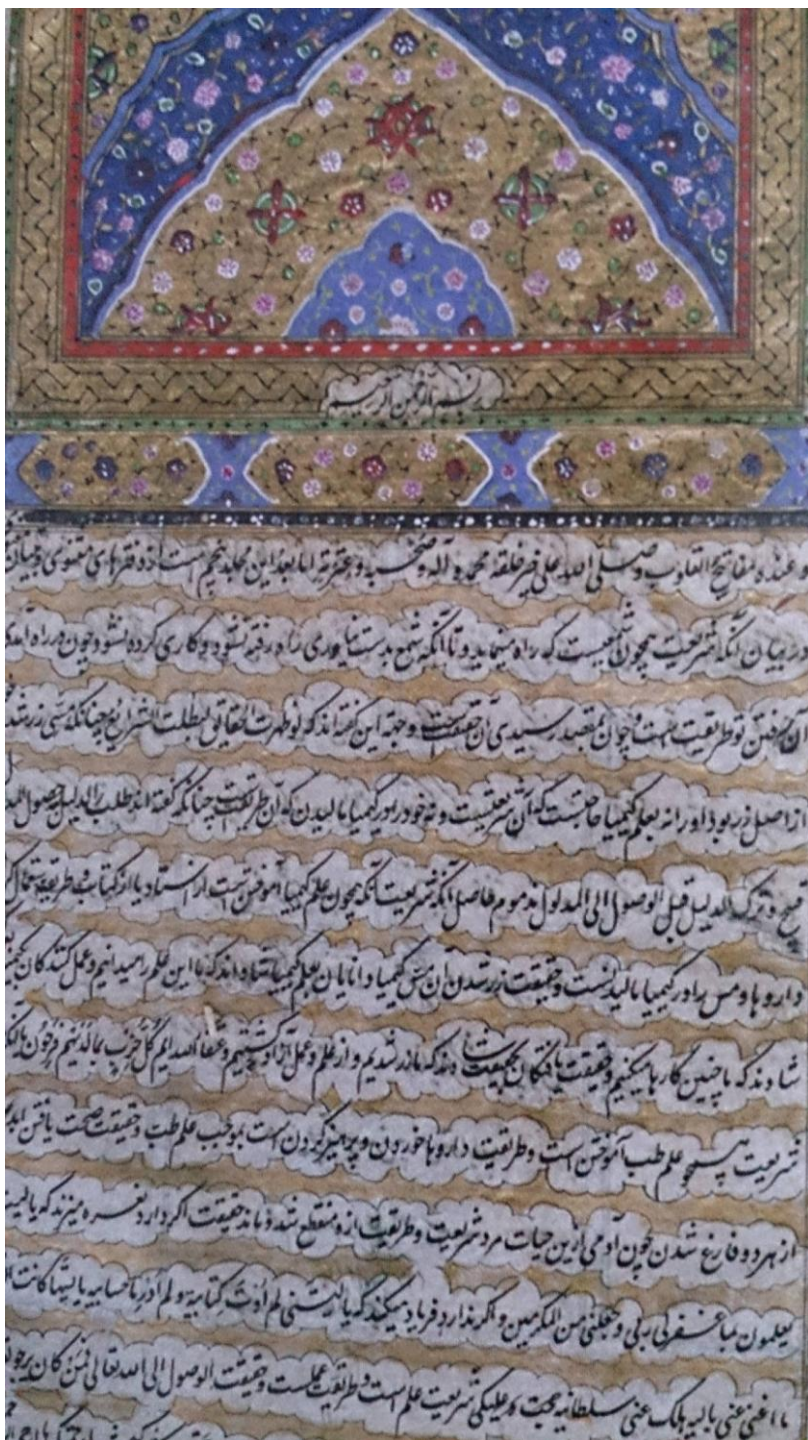 بسم الله الرحمن الرحیم
و عنده مفاتیح القلوب و صلی الله علی خیر خلقه محمد و آله و صحبه و عترته اما بعد این مجلد پنجم است از دفترهای مثنوی و تبیان
در بیان آنکه شریعت همچون شمعیست که راه مینماید و تا آنکه شمع بدست نیاوری راه رفته نشود و کاری کرده نشود و چون در راه آمدی
آن رفتن تو طریقت است و چون بمقصد رسیدی آن حقیقت است و جهة این گفته اند که لو ظهرت الحقایق لبطلت الشرایع چنانکه مسی زر شد
از اصل زر بود او را نه بعلم کیمیا حاجتست که آن شریعتست و نه خود را در کیمیا مالیدن که آن طریقت است چنانکه گفته اند طلب الدلیل حصول
قبیح و ترک الدلیل قبل الوصول الی المدلول مذموم حاصل آنکه شریعت آنکه همچون علم کیمیا آموختن است از استاد یا از کتاب و طریقت استعمال
داروها و مس را در کیمیا مالیدنست و حقیقت زر شدن آن مس کیمیا دانایان بعلم کیمیا شادند که ما این علم را میدانیم و عمل کنندگان
شادند که ما چنین کارها میکنیم و حقیقت یافتگان بحقیقت شادند که ما زر شدیم و از علم و عمل آزاد گشتیم و عتقاء الله ایم کل حزب بما لدیهم فرحون
شریعت همچو علم طب آموختن است و طریقت داروها خوردن و پرهیز کردن است بموجب علم طب و حقیقت صحت یافتن
از هر دو فارغ شدن چون آدمی ازین حیات مرد شریعت و طریقت ازو منقطع شد و ماند حقیقت اگر دارد نعره میزند که یا لیت
یعلمون بما غفر لی ربی و جعلنی من المکرمین و اگر ندارد فریاد میکند که یا لیتنی لم اوت کتابیه و لم ادر ما حسابیه یا لیتها کانت
ما اغنی عنی مالیه هلک عنی سلطانیه شریعت علم است و طریقت عملست و حقیقت الوصول الی الله تعالی فمن کان یرجو